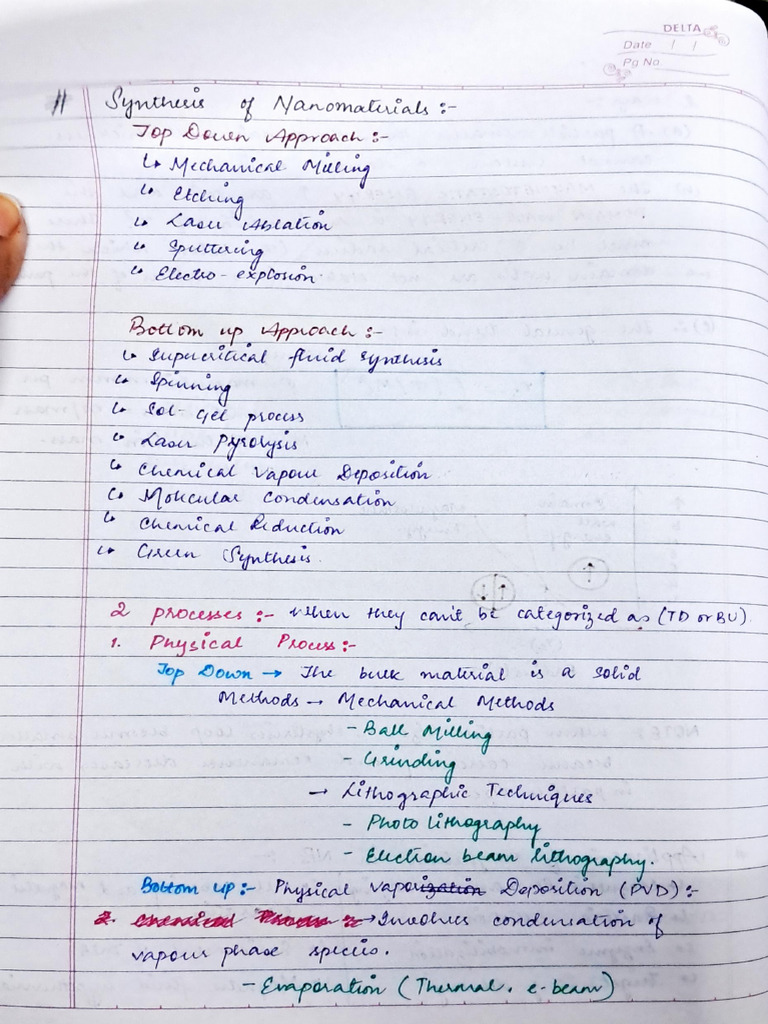 DELTA
Date / /
Pg No
# Synthesis of Nanomaterials :-
Top Down Approach :-
↳ Mechanical Milling
↳ Etching
↳ Laser Ablation
↳ Sputtering
↳ Electro-explosion.
Bottom up Approach :-
↳ Supercritical fluid synthesis
↳ Spinning
↳ Sol-Gel process
↳ Laser Pyrolysis
↳ Chemical Vapour Deposition
↳ Molecular Condensation
↳ Chemical Reduction
↳ Green Synthesis.
2 processes :- When they can't be categorized as (TD or BU).
1. Physical Process :-
Top Down → The bulk material is a solid
Methods → Mechanical Methods
- Ball Milling
- Grinding
→ Lithographic Techniques
- Photo lithography
- Electron beam lithography.
Bottom up :- Physical vaporization Deposition (PVD) :-
2. Chemical Process :- → Involves condensation of
vapour phase species.
- Evaporation (Thermal, e-beam)